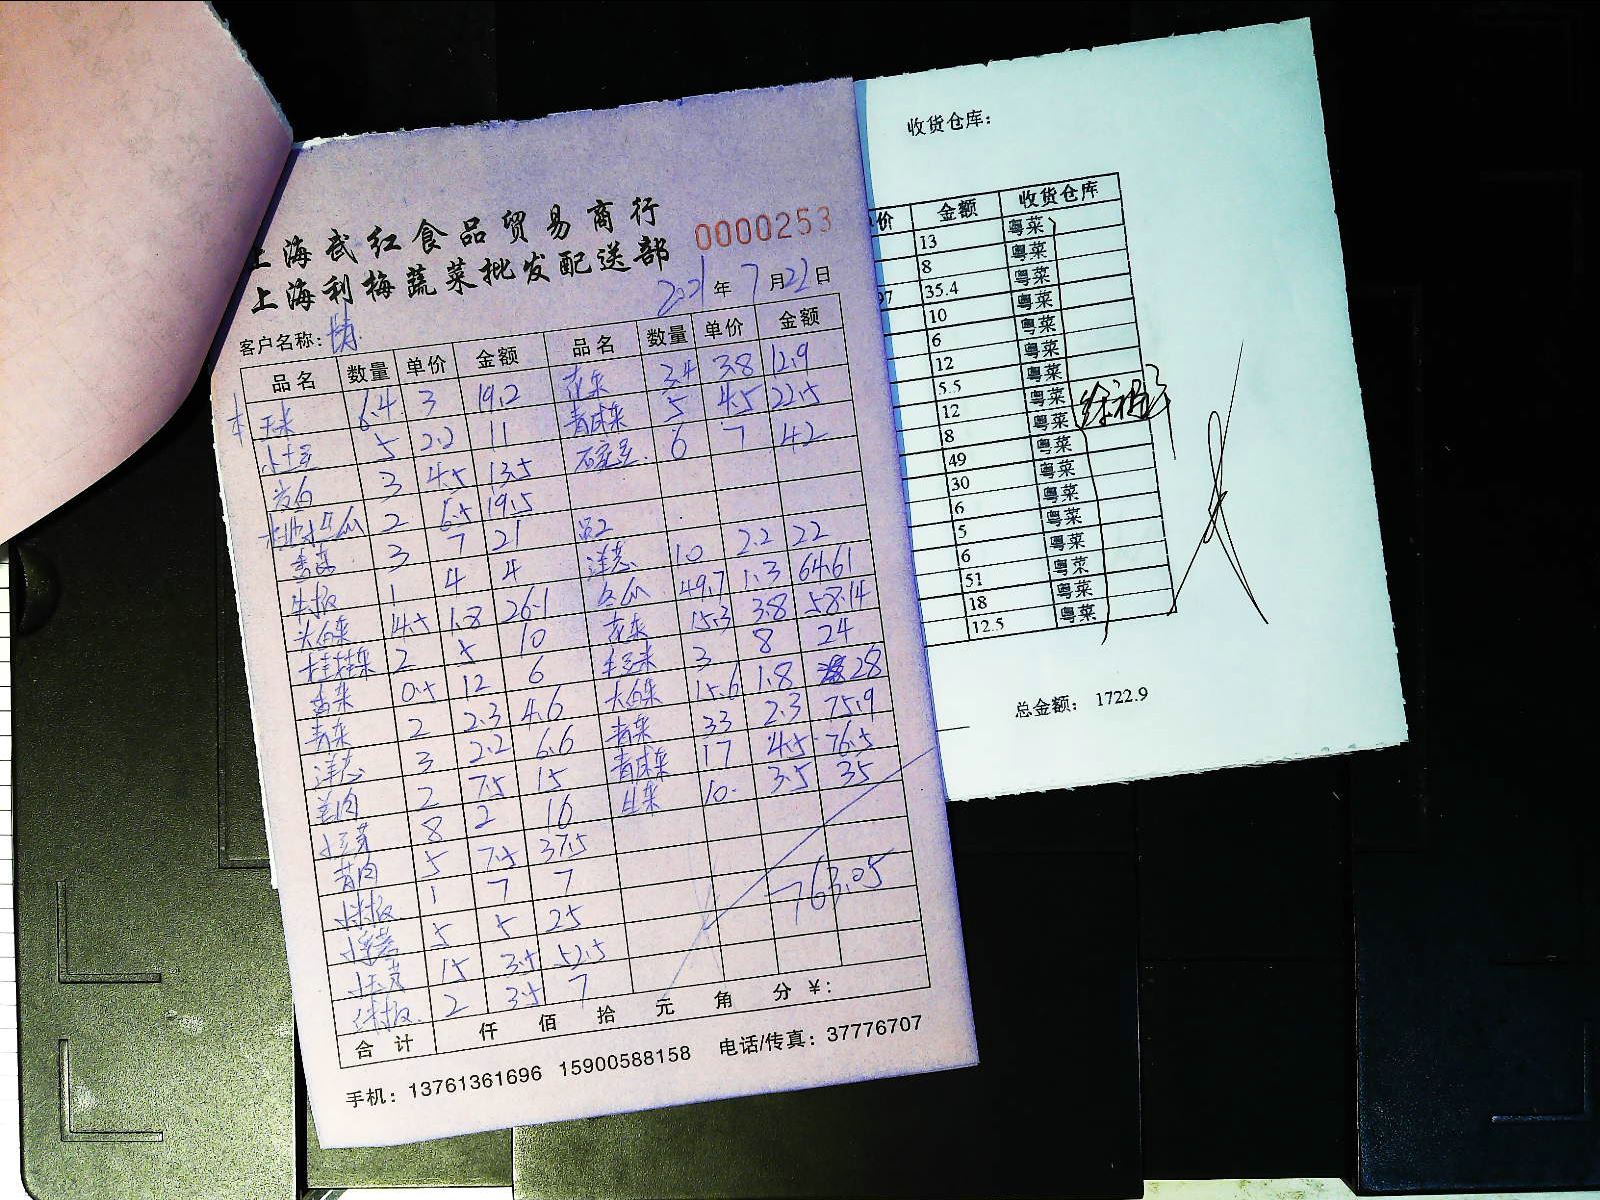 上海武红食品贸易商行
上海利梅蔬菜批发配送部
0000253
2021年7月22日
客户名称:
品名 数量 单价 金额 品名 数量 单价 金额
玉米 6.4 3 19.2 花菜 3.4 3.8 12.9
小土豆 5 2.2 11 青成菜 5 4.5 22.5
3 4.5 13.5 6 7 42
2 6.5 19.5
香菜 3 7 21
1 4 4 洋葱 10 2.2 22
大白菜 14.5 1.8 26.1 冬瓜 49.7 1.3 64.61
2 5 10 花菜 15.3 3.8 58.14
香菜 0.5 12 6 3 8 24
青菜 2 2.3 4.6 大白菜 15.6 1.8 28
洋葱 3 2.2 6.6 青菜 33 2.3 75.9
2 7.5 15 青成菜 17 4.5 76.5
8 2 16 生菜 10 3.5 35
5 7.5 37.5
1 7 7
5 5 25
15 3.5 52.5
2 3.5 7
763.05
合计 仟 佰 拾 元 角 分 ¥:
手机: 13761361696 15900588158 电话/传真: 37776707
收货仓库:
价 金额 收货仓库
13 粤菜
8 粤菜
97 35.4 粤菜
10 粤菜
6 粤菜
12 粤菜
5.5 粤菜
12 粤菜
8 粤菜
49 粤菜
30 粤菜
6 粤菜
5 粤菜
6 粤菜
51 粤菜
18 粤菜
12.5 粤菜
总金额: 1722.9